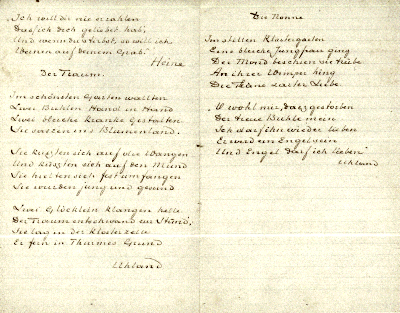 Ich will dir nie erzählen
Daß ich dich geliebet hab,
Und wenn du stirbst, so will ich
Weinen auf deinem Grab.
Heine
Der Traum.
Im schönsten Garten wallten
Zwei Buhlen Hand in Hand
Zwei bleiche Kranke Gestalten
Sie saßen ins Blumenland.
Sie küßten sich auf die Wangen
Und küßten sich auf den Mund
Sie hielten sich fest umfangen
Sie wurden jung und gesund
Zwei Glöcklein klangen helle
Der Traum entschwand zur Stund;
Sie lag in der Klosterzelle
Er fern in Thurmes Grund
Uhland
Die Nonne
Im stillen Klostergarten
Eine bleiche Jungfrau ging
Der Mond beschien sie trübe
An ihrer Wimper hing
Die Thräne zarter Liebe.
O wohl mir, daß gestorben
Der treue Buhle mein
Ich darf ihn wieder lieben
Er wird ein Engel sein
Und Engel darf ich lieben
Uhland